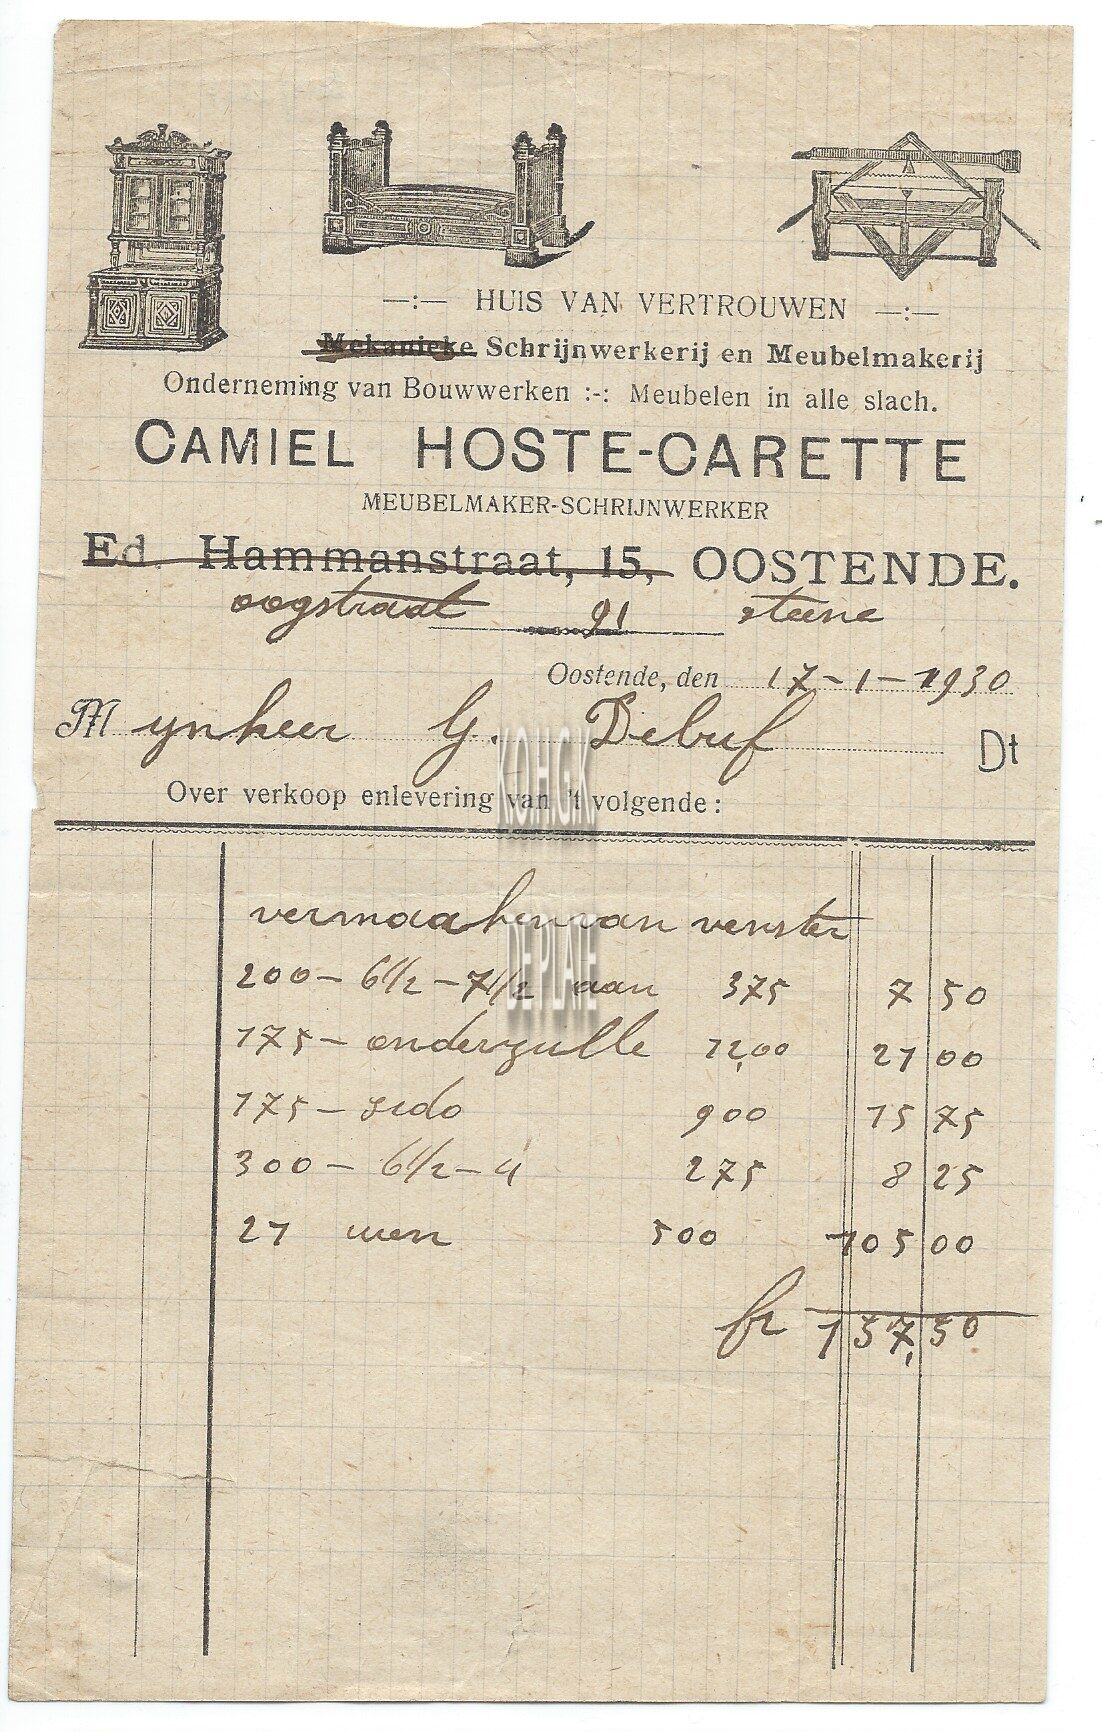 —:— HUIS VAN VERTROUWEN —:—
Mekanieke Schrijnwerkerij en Meubelmakerij
Onderneming van Bouwwerken :-: Meubelen in alle slach.
CAMIEL HOSTE-CARETTE
MEUBELMAKER-SCHRIJNWERKER
Ed. Hammanstraat, 15, OOSTENDE.
oogstraat 91 steene
Oostende, den 17-1-1930
Mynheer G. Debuf Dt
Over verkoop enlevering van 't volgende:
K.O.H.G.K.
vermaaken van venster
DE PLATE
200 - 6 1/2 - 7 1/2 aan 375 7 50
175 - onderzulle 12,00 21 00
175 - 900 15 75
300 - 6 1/2 - 4 275 8 25
21 uren 500 105 00
fr 157,50